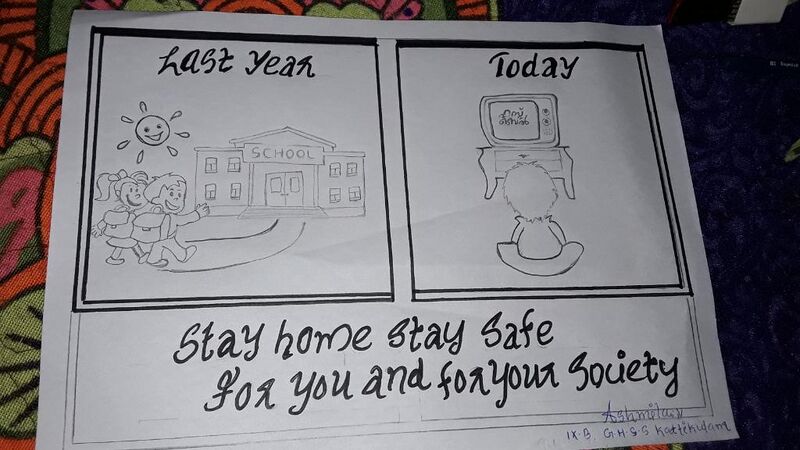 Last Year
Today
SCHOOL
ഫസ്റ്റ്
ബെൽ
Stay home stay safe
for you and for your society
IX.B. G.H.S.S Kattikulam